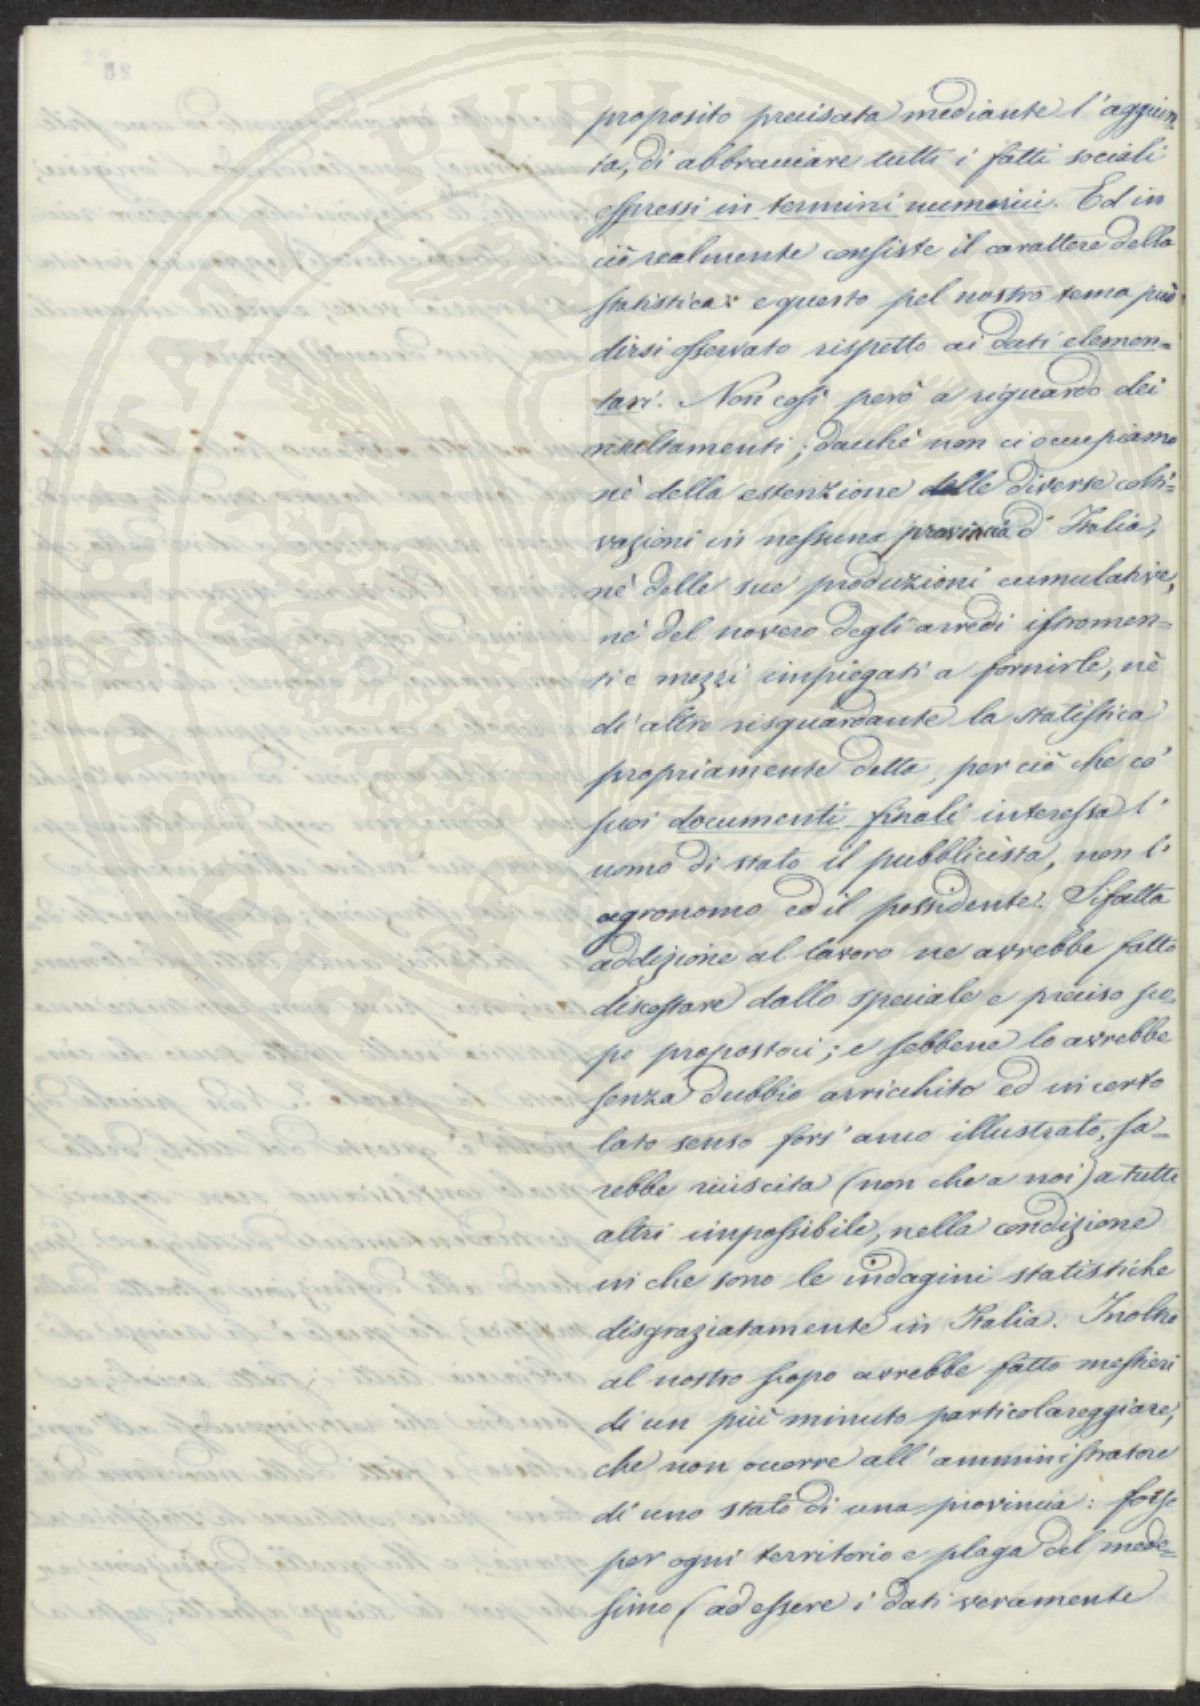 proposito precisata mediante l'aggiun-
ta, di abbracciare tutti i fatti sociali
espressi in termini numerici. Ed in
ciò realmente consiste il carattere della
statistica: e questo pel nostro tema può
dirsi osservato rispetto ai dati elemen=
tari. Non così però a riguardo dei
risultamenti; dacchè non ci occupiamo
nè della estenzione delle diverse colti=
vazioni in nessuna provincia d'Italia,
nè delle sue produzioni cumulative,
nè del novero degli arredi istromen=
ti e mezzi impiegati a fornirle, nè
di altro risguardante la statistica
propriamente detta, per ciò che co'
suoi documenti finali interessa l'
uomo di stato il pubblicista, non l'
agronomo ed il possidente. Sifatta
addizione al lavoro ne avrebbe fatto
discostare dallo speciale e preciso sco-
po propostoci; e sebbene lo avrebbe
senza dubbio arricchito ed in certo
lato senso fors'anco illustrato, sa=
rebbe riuscita (non che a noi) a tutti
altri impossibile, nella condizione
in che sono le indagini statistiche
disgraziatamente in Italia. Inoltre
al nostro scopo avrebbe fatto mestieri
di un più minuto particolareggiare,
che non occorre all'amministratore
di uno stato di una provincia: forse
per ogni territorio e plaga del mede=
simo (ad essere i dati veramente